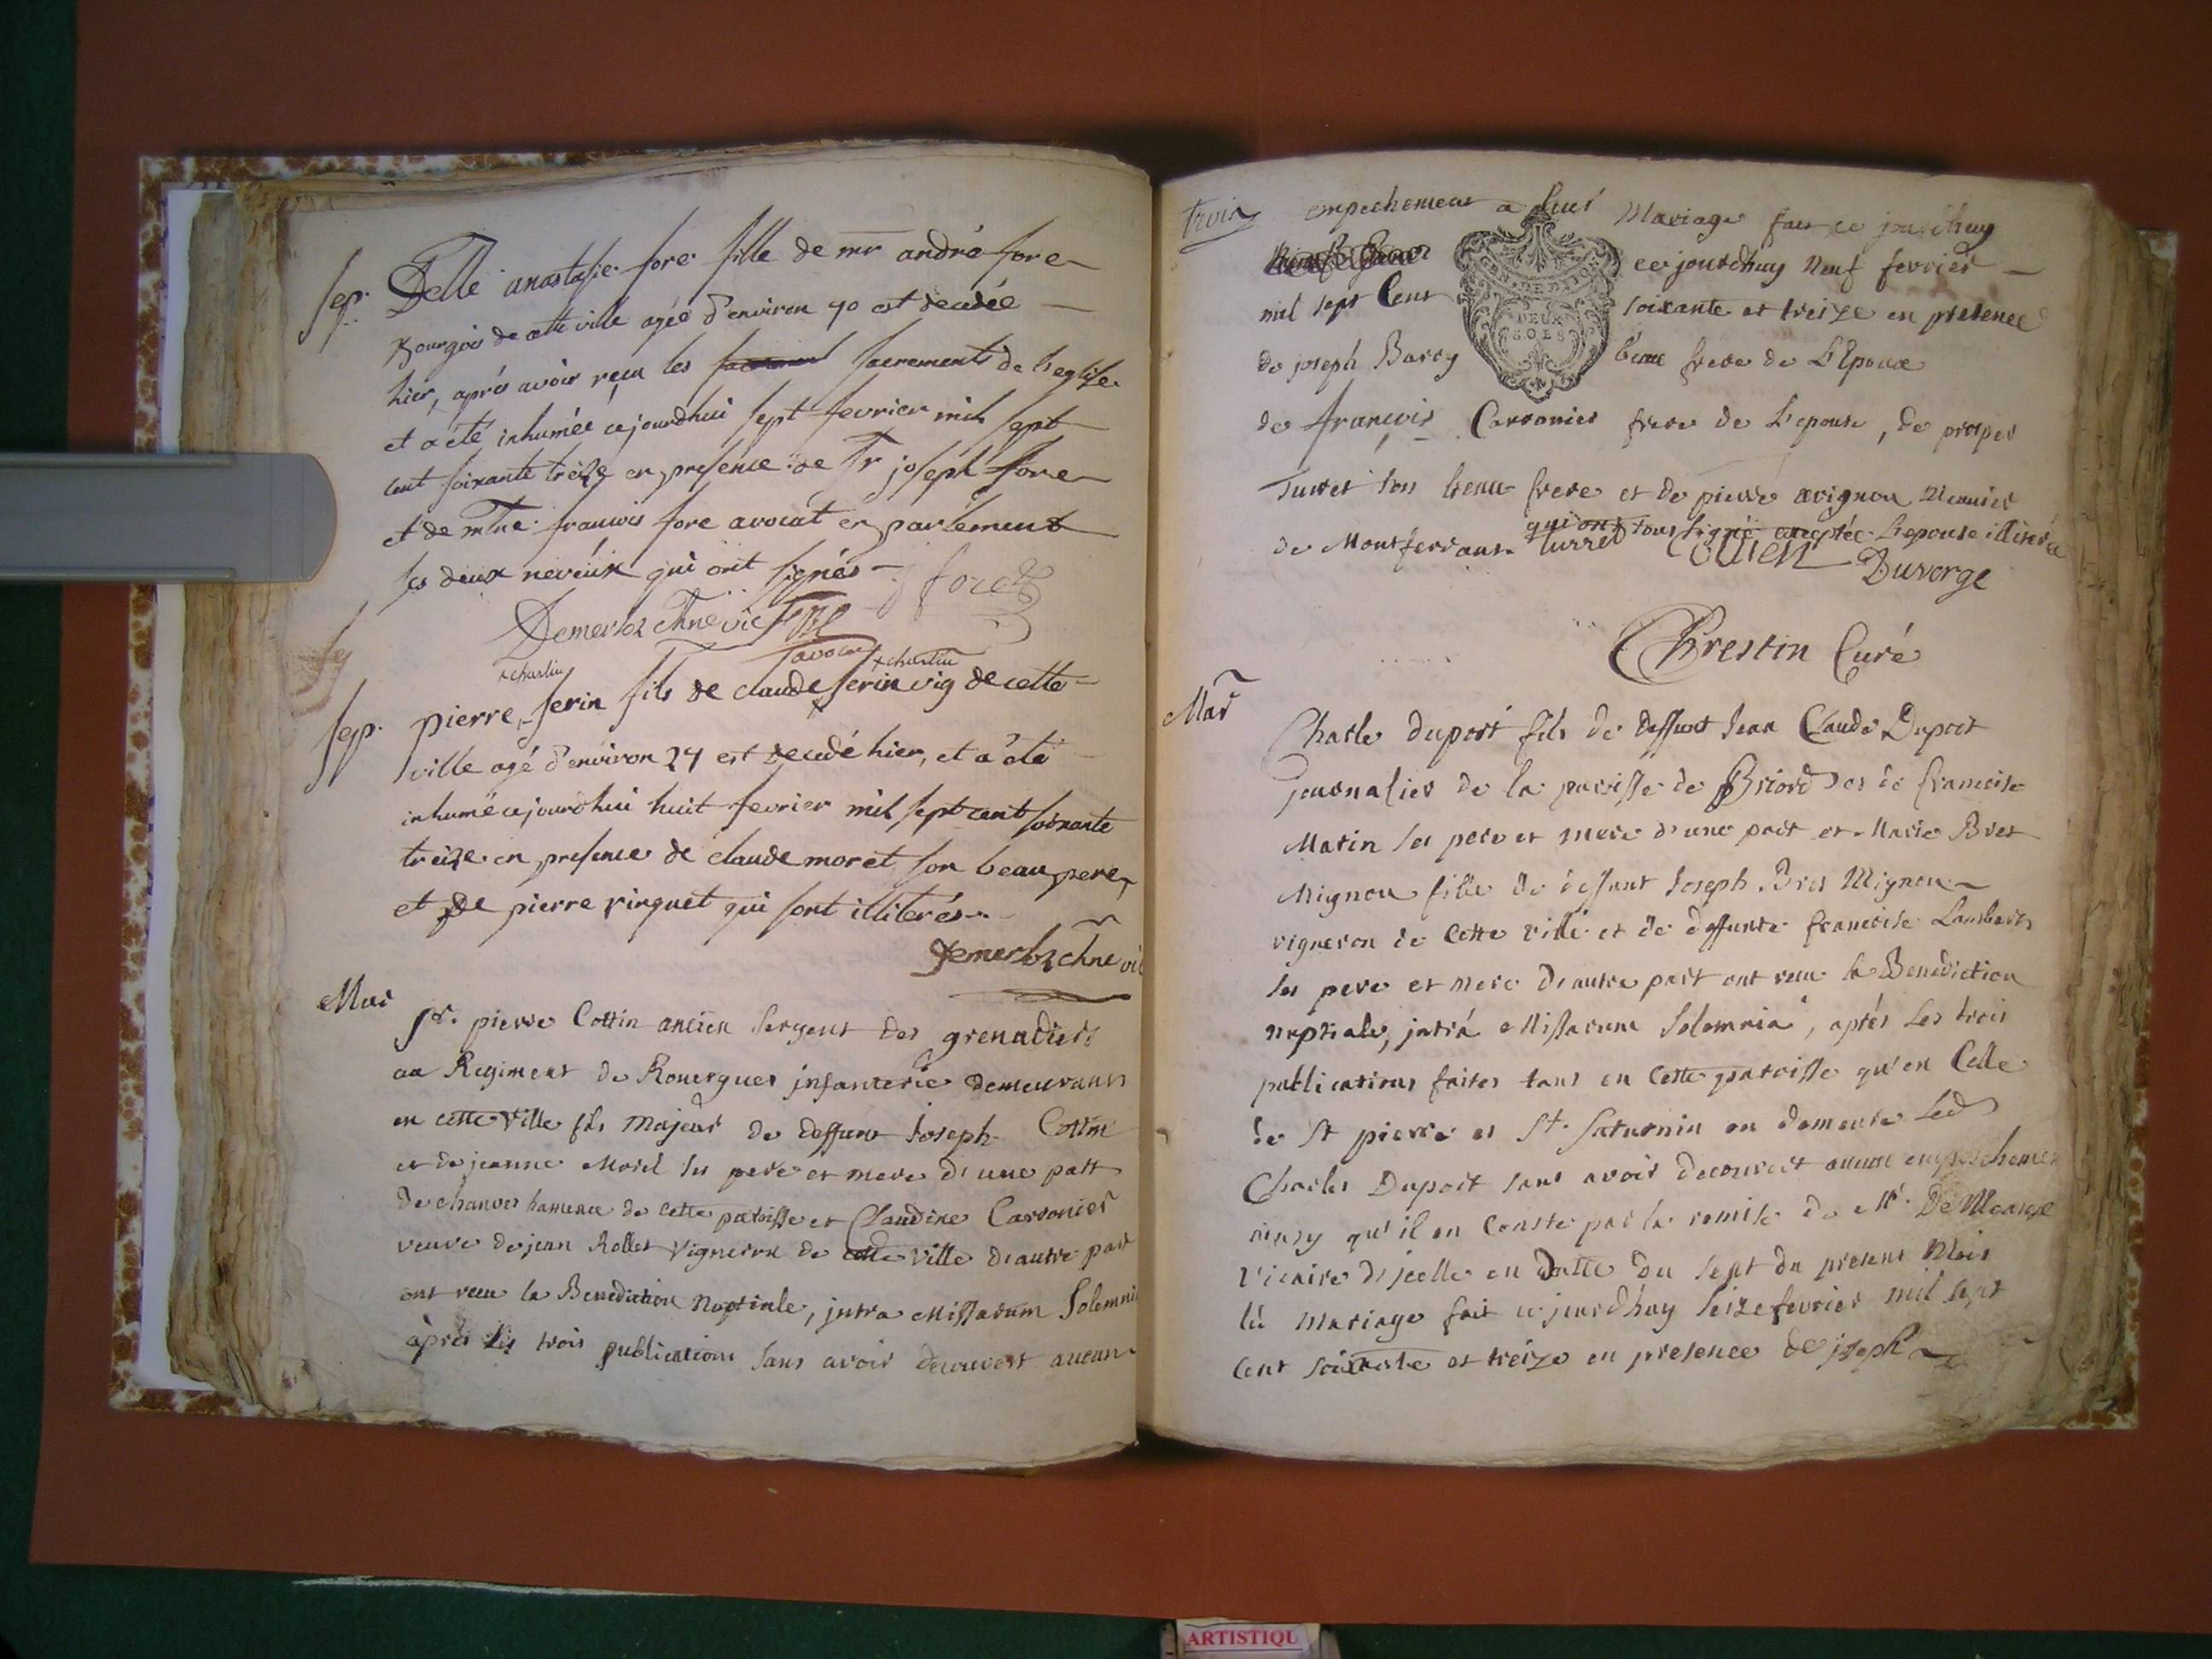 Sep. Delle anastasie fore fille de mr andré fore
Bourgois de cette ville agée d'environ 40 est decedée
hier, aprés avoir reçu les sacrements de l'eglise
et a été inhumée cejourdhui sept fevrier mil sept
cent soixante treize en presence de Sr joseph fore
et de mtre francois fore avocat en parlement
ses deux neveux qui ont signés
fore
Demerloz chne vic FORE
avocat
x charlin x charlin
Sep. pierre serin fils de claude serin vig de cette
ville agé d'environ 24 est decedé hier, et a été
inhumé cejourdhui huit fevrier mil sept cent soixante
treize en presence de claude moret son beau pere,
et de pierre pinquet qui sont illiterés
Demerloz chne vic
Mar Sr. pierre Cottin ancien sergent des grenadiers
au Regiment de Rouergues infanterie demeurant
en cette ville fils majeur de deffunt Joseph Cottin
et de jeanne Morel ses pere et mere d'une part
de cette paroisse et Claudine Carronier
veuve de jean Rollet vigneron de cette ville d'autre part
ont receu la Benediction nuptiale, intra Missarum Solemnia
après les trois publications sans avoir decouvert aucun
trois
empechement a leur Mariage fait ce jourdhuy
ce jourdhuy neuf fevrier
mil sept Cent soixante et treize en presence
GEN. DE DIJON
DEUX
SOLS
de joseph Barry beau frere de L'Epoux
de françois Carronier frere de L'epouse, de prosper
Turret son beau frere et de pierre avignon Meunier
de Montferrant qui ont tous signé exceptée L'epouse illiterée
turret Cottin
Duverge
Chrestin Curé
Mar
Charle duport fils de deffunt Jean Claude Duport
journalier de la paroisse de Briord et de francoise
Marin ses pere et mere d'une part et Marie Bret
Mignon fille de deffunt Joseph Bret Mignon
vigneron de Cette ville et de deffunte francoise Lambert
ses pere et mere d'autre part ont receu la Benediction
nuptiale, intrá Missarum Solemnia, aprés Les trois
publications faites tant en Cette paroisse qu'en Celle
de St pierre et St. Saturnin ou demeure Led
Charles Duport sans avoir decouvert aucun empechement
ainsy qu'il en Conste par la remise de Mr.
vicaire d'icelle en datte du sept du present Mois
Mariage fait ce jourdhuy seize fevrier mil sept
Cent soixante et treize en presence de joseph
ARTISTIQU